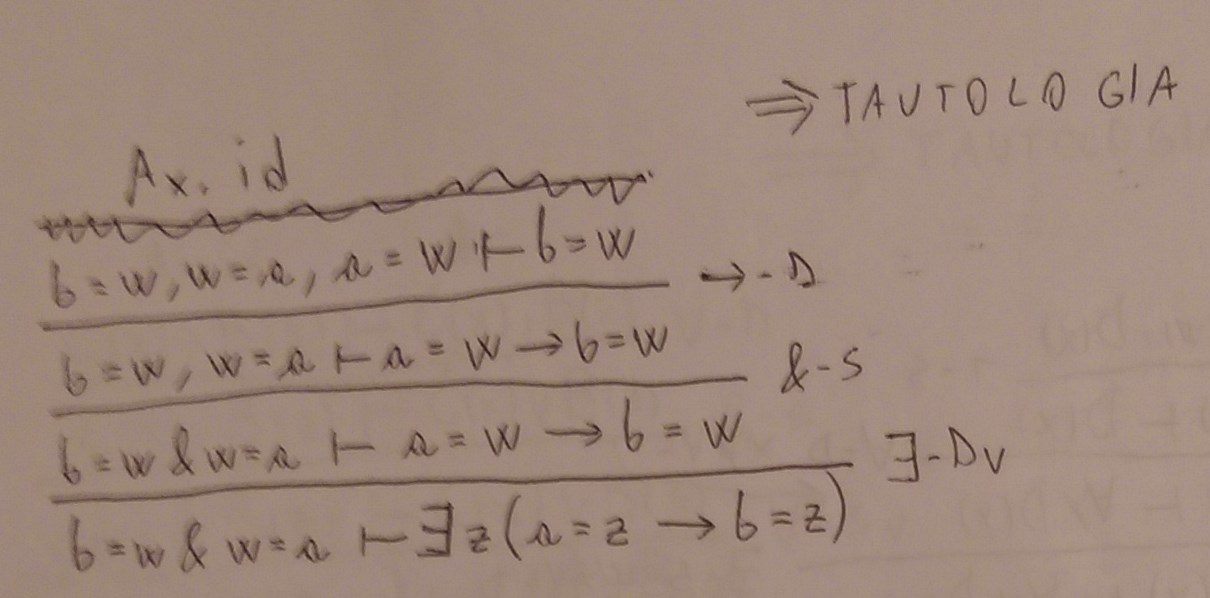 ⇒ TAUTOLOGIA
Ax. id
b = w, w = a, a = w ⊢ b = w
→ - D
b = w, w = a ⊢ a = w → b = w
& - S
b = w & w = a ⊢ a = w → b = w
∃ - Dv
b = w & w = a ⊢ ∃z(a = z → b = z)